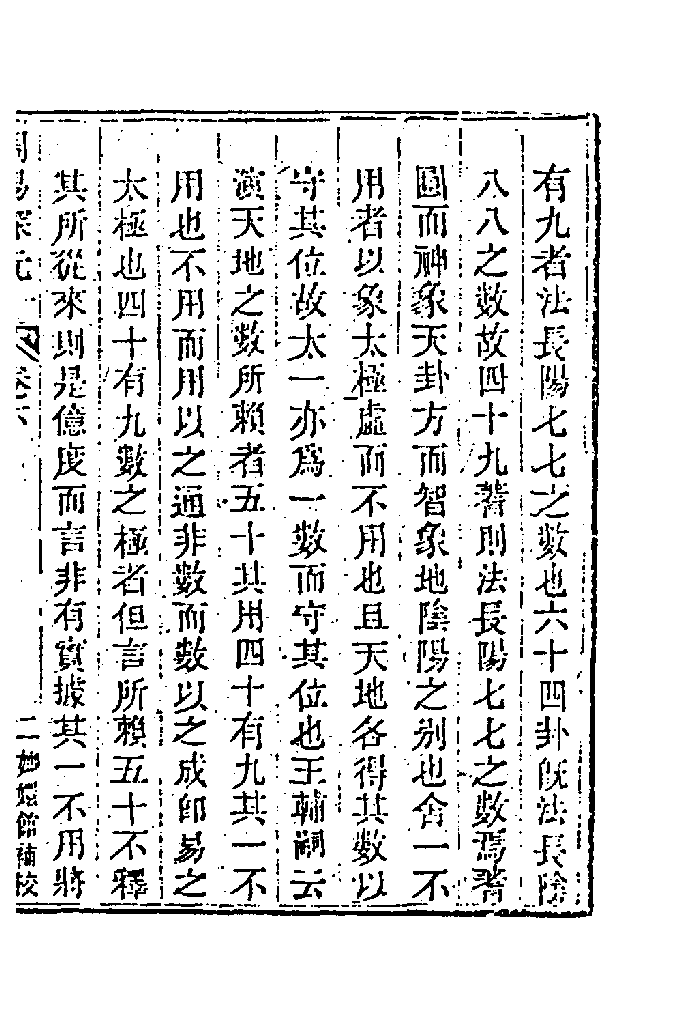 有九者法長陽七七之數也六十四卦旣法長陰
八八之數故四十九蓍則法長陽七七之數焉蓍
圓而神象天卦方而智象地陰陽之别也舍一不
用者以象太極虛而不用也且天地各得其數以
守其位故太一亦爲一數而守其位也王輔嗣云
演天地之數所賴者五十其用四十有九其一不
用也不用而用以之通非數而數以之成卽易之
太極也四十有九數之極者但言所賴五十不釋
其所從來則是億度而言非有實據其一不用將
周易探元 卷下 二 館補校